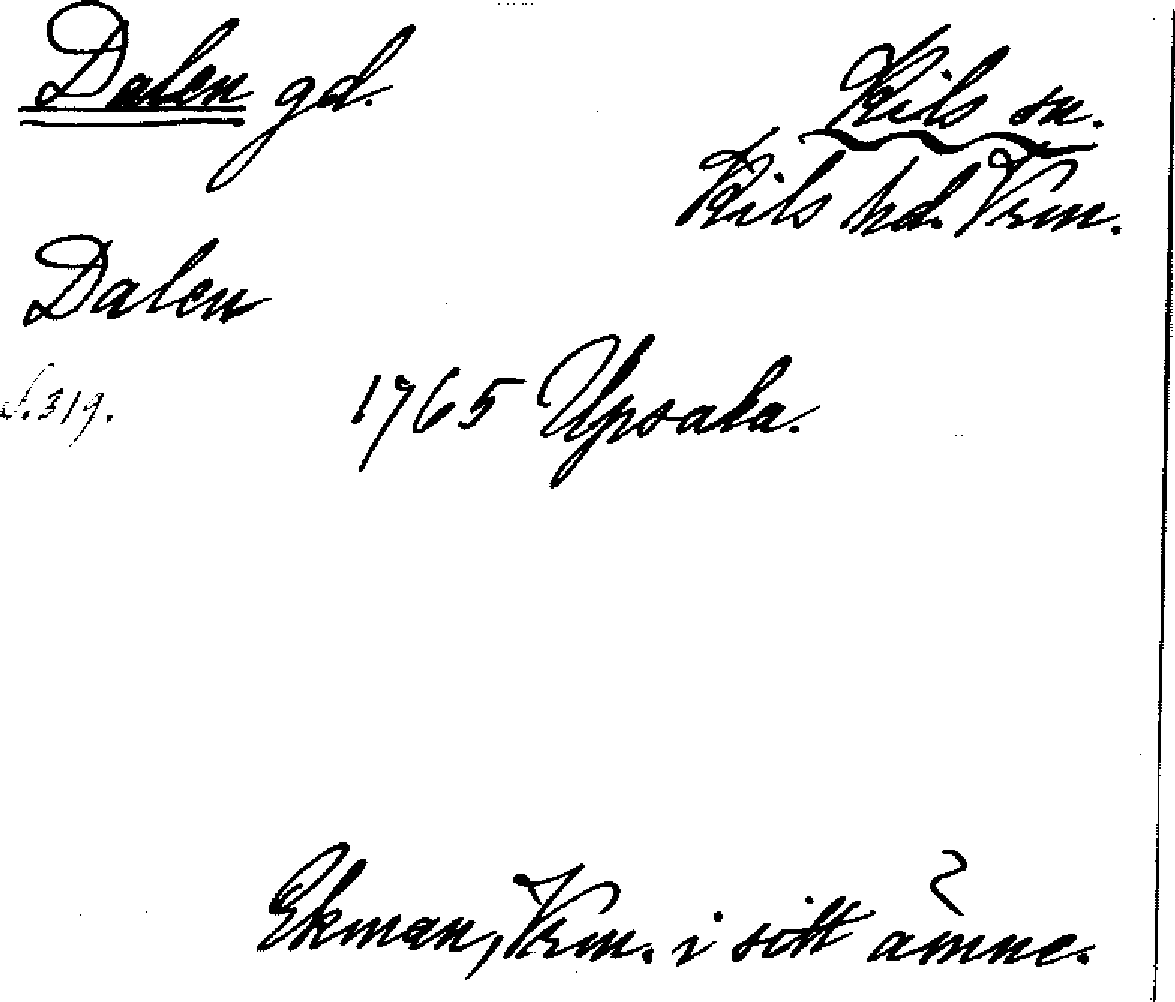 Dalen gd.
Kils sn.
Kils hd. Vrm.
Dalen
S. 319.
1765 Upsala.
Ekman, Vrm. i sitt ämne.